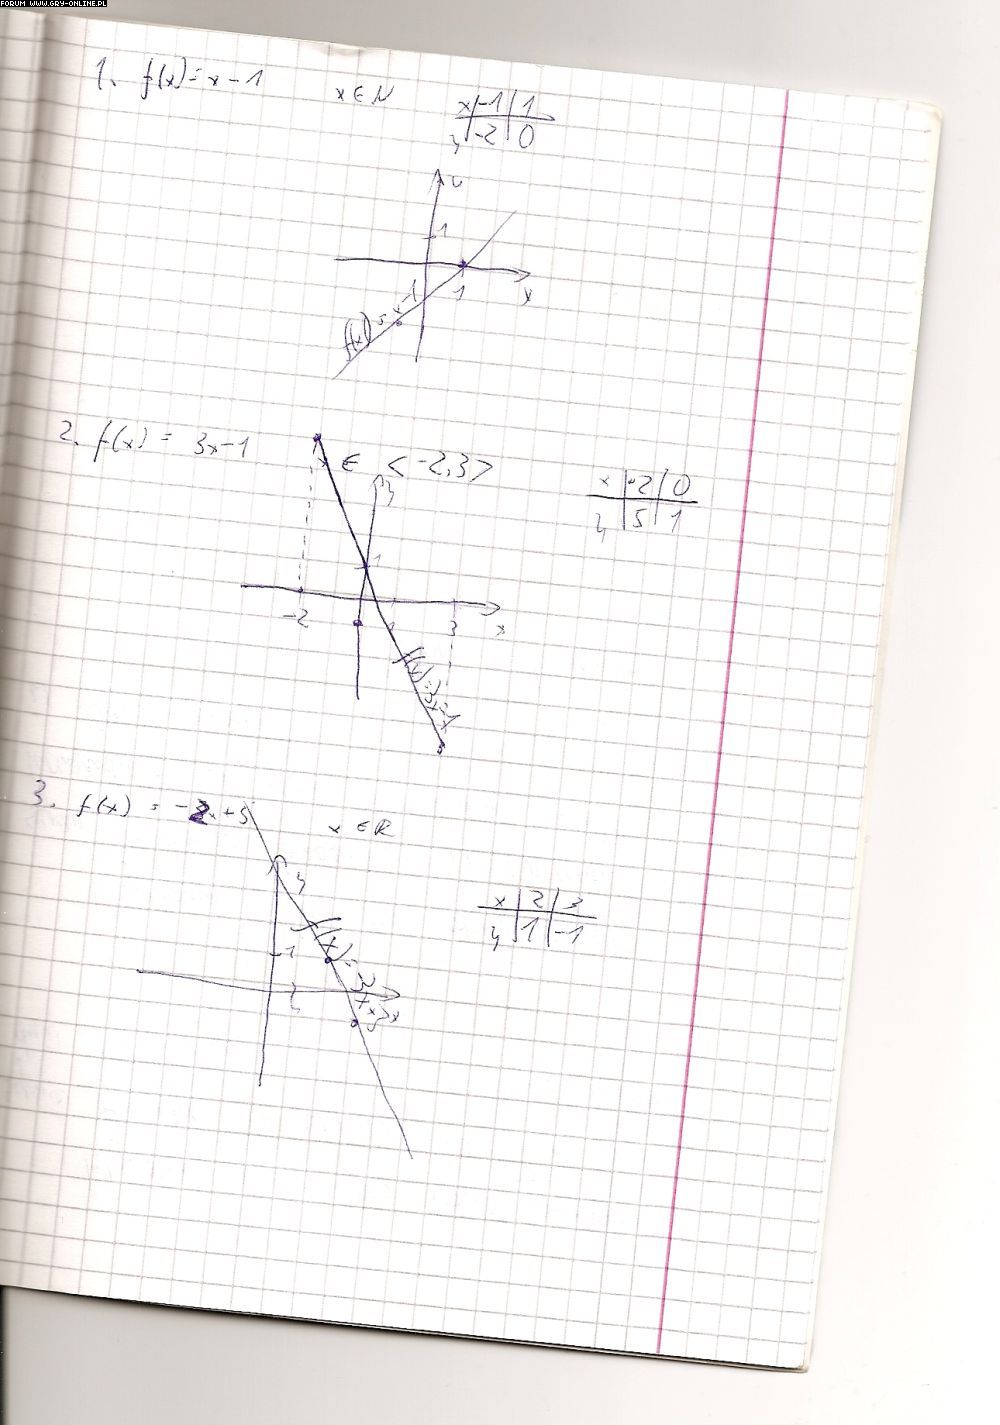 FORUM WWW.GRY-ONLINE.PL
1. f(x) = x - 1 x ∈ N
x -1 1
y -2 0
y
1
1
x
-1
f(x) = x
2. f(x) = 3x - 1 x ∈ <-2,3>
x -2 0
y 5 1
y
1
-2 1 3
x
f(x) = 3x - 1
3. f(x) = -2x + 5 x ∈ R
x 2 3
y 1 -1
y
1
x